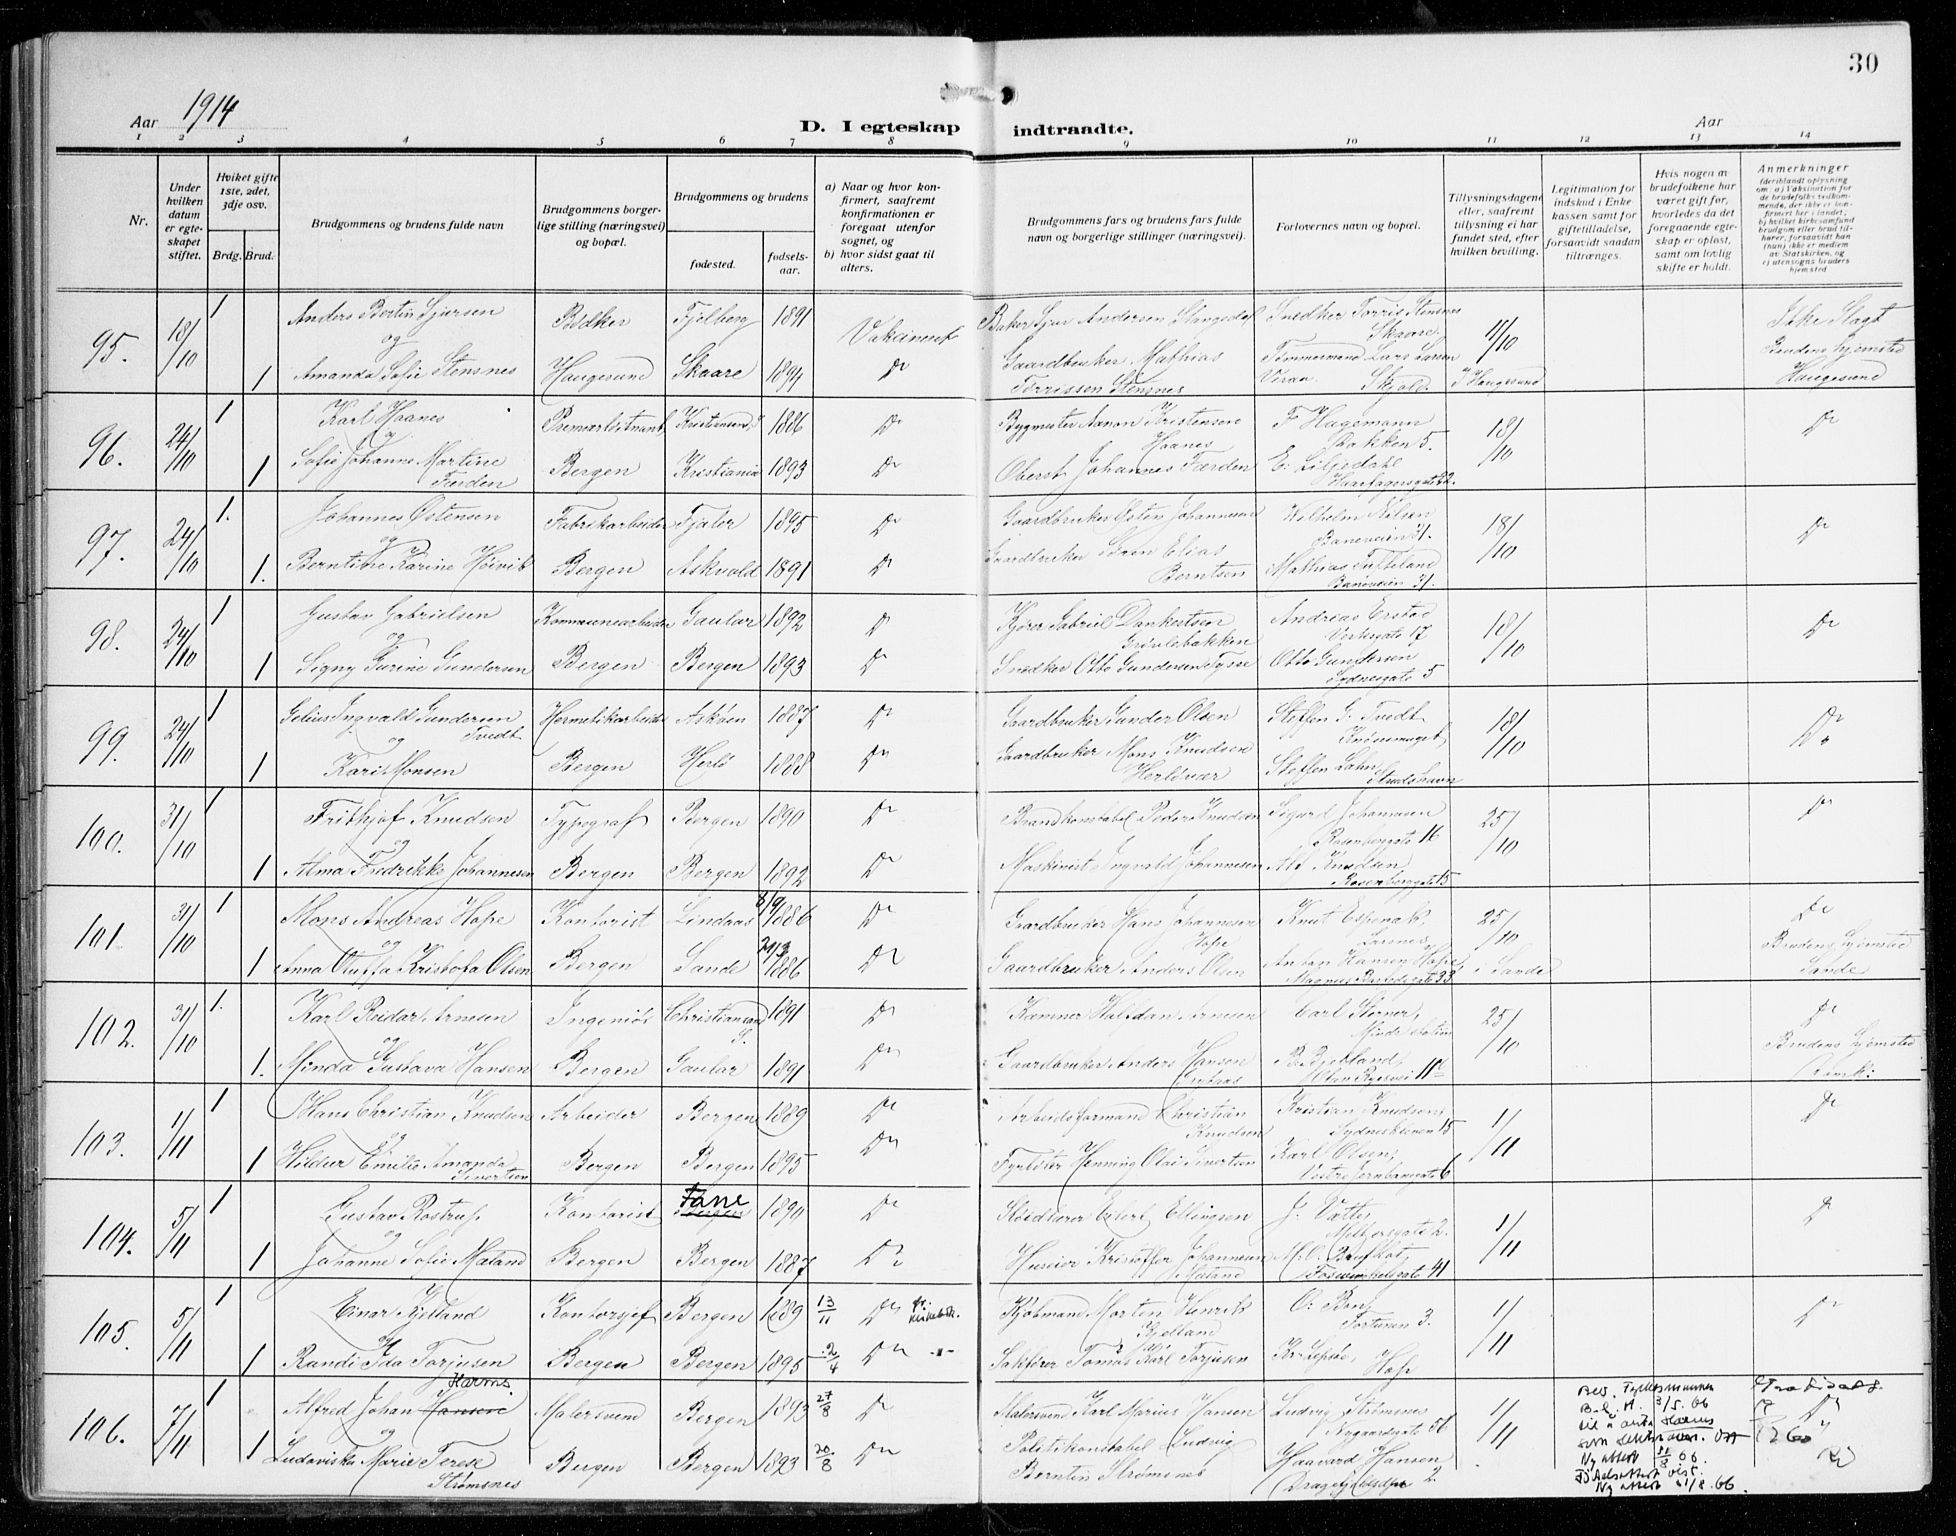 30
Aar 1914
D. I egteskap indtraadte.
Aar
1 2 3 4 5 6 7 8 9 10 11 12 13 14
Nr.
Under hvilken datum er egteskapet stiftet.
Hvilket gifte 1ste, 2det, 3dje osv.
Brdg. Brud.
Brudgommens og brudens fulde navn
Brudgommens borgerlige stilling (næringsvei) og bopæl.
Brudgommens og brudens
fødested.
fødselsaar.
a) Naar og hvor konfirmert, saafremt konfirmationen er foregaat utenfor sognet, og
b) hvor sidst gaat til alters.
Brudgommens fars og brudens fars fulde navn og borgerlige stillinger (næringsvei).
Forlovernes navn og bopæl.
Tillysningsdagene eller, saafremt tillysning ei har fundet sted, efter hvilken bevilling.
Legitimation for indskud i Enkekassen samt for giftetilladelse, forsaavidt saadan tiltrænges.
Hvis nogen av brudefolkene har været gift før, hvorledes da det foregaaende egteskap er opløst, samt om lovlig skifte er holdt.
Anmerkninger
(deriblandt oplysning om: a) Vaksination for de brudefolks vedkommende, der ikke er konfirmert her i landet; b) hvilket kirkesamfund brudgom eller brud tilhører, forsaavidt han (hun) ikke er medlem av Statskirken, og c) utensogns bruders hjemsted
95. 18/10 1 Anders Bertin Sjursen Bødker Fjelberg 1891 Vakcineret Baker Sjur Andersen Snedker Torris Stensnes Skaare 11/10 Ikke Slegt
og
1 Amanda Sofie Stensnes Haugesund Skaare 1894 Do Gaardbruker Mathias Torrissen Stensnes Tømmermand Lars Larsen Skjold. I Haugesund Brudens hjemsted Haugesund
96. 24/10 1 Karl Haanes Premierløitnant Kristiansand S 1886 Do Bygmester Aanon Kristensen Haanes F Hagemann Bakken 5. 18/10 Do
og
1 Sofie Johanne Martine Færden Bergen Kristiania 1893 Do Oberst Johannes Færden E. Liljedahl Haarfagersgate 22.
97. 24/10 1. Johannes Østensen Fabrikarbeider Fjaler 1895 Do Gaardbruker Østen Johannesen Wilhelm Nilsen Baneveien 31. 18/10 Do
og
1. Berntine Karine Høivik Bergen Askvold 1891 Do Gaardbruker Søren Elias Berntsen Mathias Tufteland Baneveien 31.
98. 24/10 1 Gustav Gabrielsen Kommunearbeider Gaular 1892 Do Kjører Gabriel Dankertsen Grøvlebakken Andreas Erstad Vestregate 17 18/10 Do
og
1 Signy Gurine Gundersen Bergen Bergen 1893 Do Snedker Otto Gundersen Tysse Otto Gundersen Sydnesgate 5
99. 24/10 1 Gelius Ingvald Gundersen Tvedt Hermetikarbeider Askøen 1887 Do Gaardbruker Gunder Olsen Steffen G. Tvedt 18/10 Do
og
1 Kari Monsen Bergen Herlø 1888 Do Gaardbruker Mons Knudsen Herløvær Steffen Lahn Strudshavn
100. 31/10 1 Frithjof Knudsen Typograf Bergen 1890 Do Brandkonstabel Peder Knudsen Sigurd Johannesen Rosenbergsgate 16 25/10 Do
og
1 Alma Fredrikke Johannesen Bergen Bergen 1892 Do Maskinist Ingvald Johannesen Alf Knudsen Rosenbergsgate 15
101. 31/10 1 Mons Andreas Hope Kontorist Lindaas 8/9 1886 Do Gaardbruker Hans Johannesen Hope Knut Espenak 25/10 Do
og
1 Anna Oluffa Kristofa Olsen Bergen Sande 1886 Do Gaardbruker Anders Olsen Anton Hansen Hope, Magnus Barfodsgate 33 i Sande Brudens hjemsted Sande
102. 31/10 1. Karl Reidar Arnesen Ingeniør Christiansand S. 1891 Do Kæmner Halfdan Arnesen Carl Störmer, Minde station 25/10 Do
og
1. Minda Gustava Hansen Bergen Gaular 1891 Do Gaardbruker Anders Hansen B. Bjelland Brudens hjemsted
103. 1/11 1 Hans Christian Knudsen Arbeider Bergen 1889 Do Arbeidsformand Christian Knudsen Kristian Knudsen Sydneskleven 15 1/11 Do
og
1 Hildur Emilie Amanda Sivertsen Bergen Bergen 1895 Do Fyrbøter Henning Olai Sivertsen Karl Olsen, Vestre Jernbanegate 6
104. 5/11 1 Gustav Rostrup Kontorist Fane Bergen 1890 Do Skidfører Eilert Ellingsen J. Vatle, 2. 1/11 Do
og
1 Johanne Sofie Mæland Bergen Bergen 1887 Do Huseier Kristoffer Johannesen Mæland Fosswinckelsgate 41
105. 5/11 1 Einar Kjelland Kontorsjef Bergen 1889 13/11 Do Kjøbmand Morten Henrik Kjelland O. Bøn, Torturen 3. 1/11 Do
og
1 Randi Ida Torjusen Bergen Bergen 1895 2/4 Do -"- Sakfører Tomas Karl Torjusen Kr. Lepsøe, Hop
106. 7/11 1 Alfred Johan Hansen Harms. Malersvend Bergen 1893 27/8 Do Malersvend Karl Marius Hansen Ludvig Strømsnes Nygaardsgate 56 1/11
og
1 Ludoviska Marie Terese Strømsnes Bergen Bergen 1893 20/8 Do Politikonstabel Ludvig Berntin Strømsnes Haavard Hansen 2
Bev. Fylkesmannen
B. H. 3/5.06
til å anta Harms
som slektsnavn.
Ny attest 11/8 66.
Dåpsattest vist.
Ny attest 11/8.66.